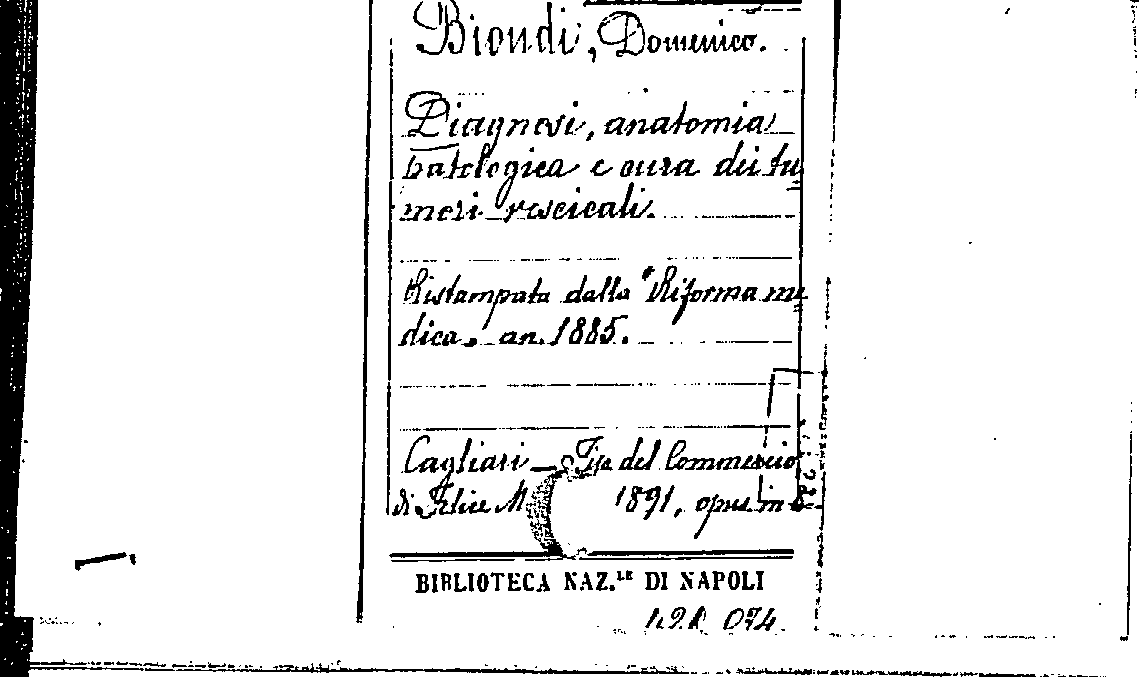 Biondi, Domenico.
Diagnosi, anatomia
patologica e cura dei tu
mori vescicali.
Ristampata dalla "Riforma me
dica" an. 1885.
Cagliari – Tip. del Commercio
di Felice M 1891, opus. in 8º
BIBLIOTECA NAZ.LE DI NAPOLI
074